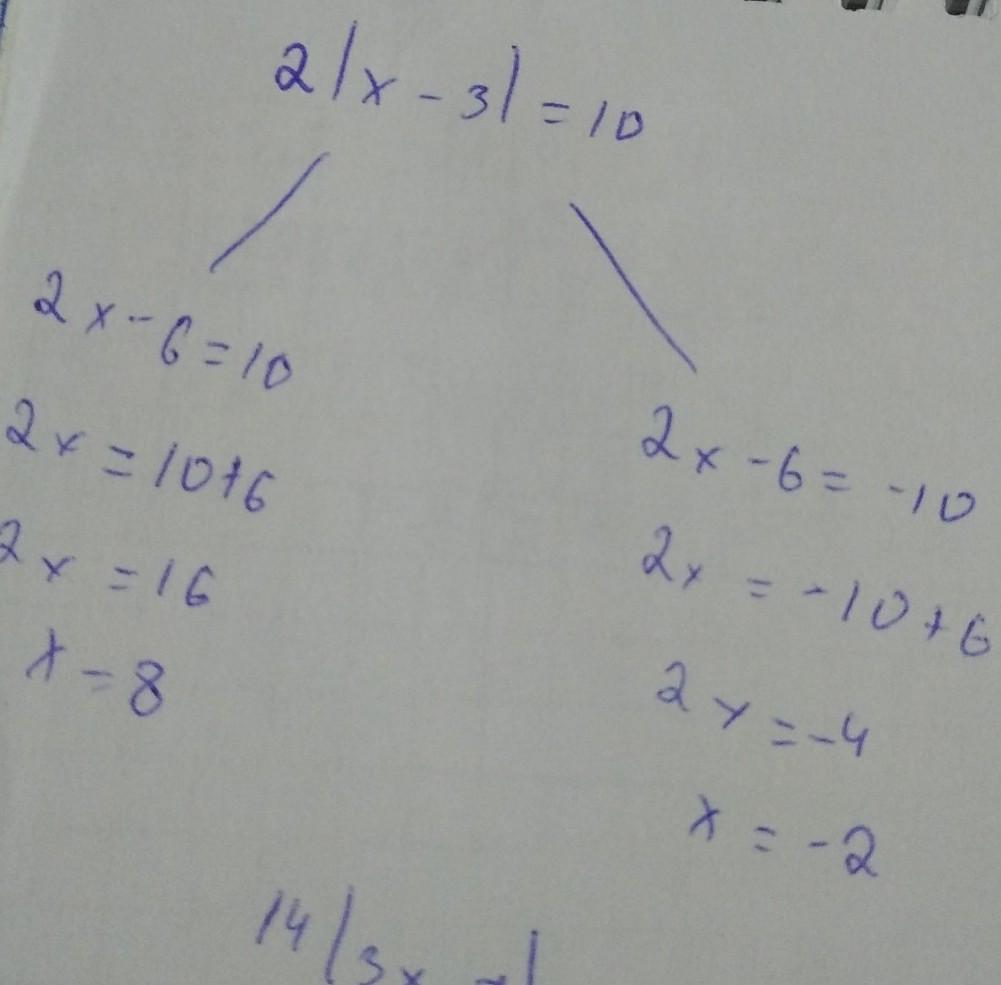 2|x-3|=10
2x-6=10
2x=10+6
2x=16
x=8
2x-6=-10
2x=-10+6
2x=-4
x=-2
14|3x -